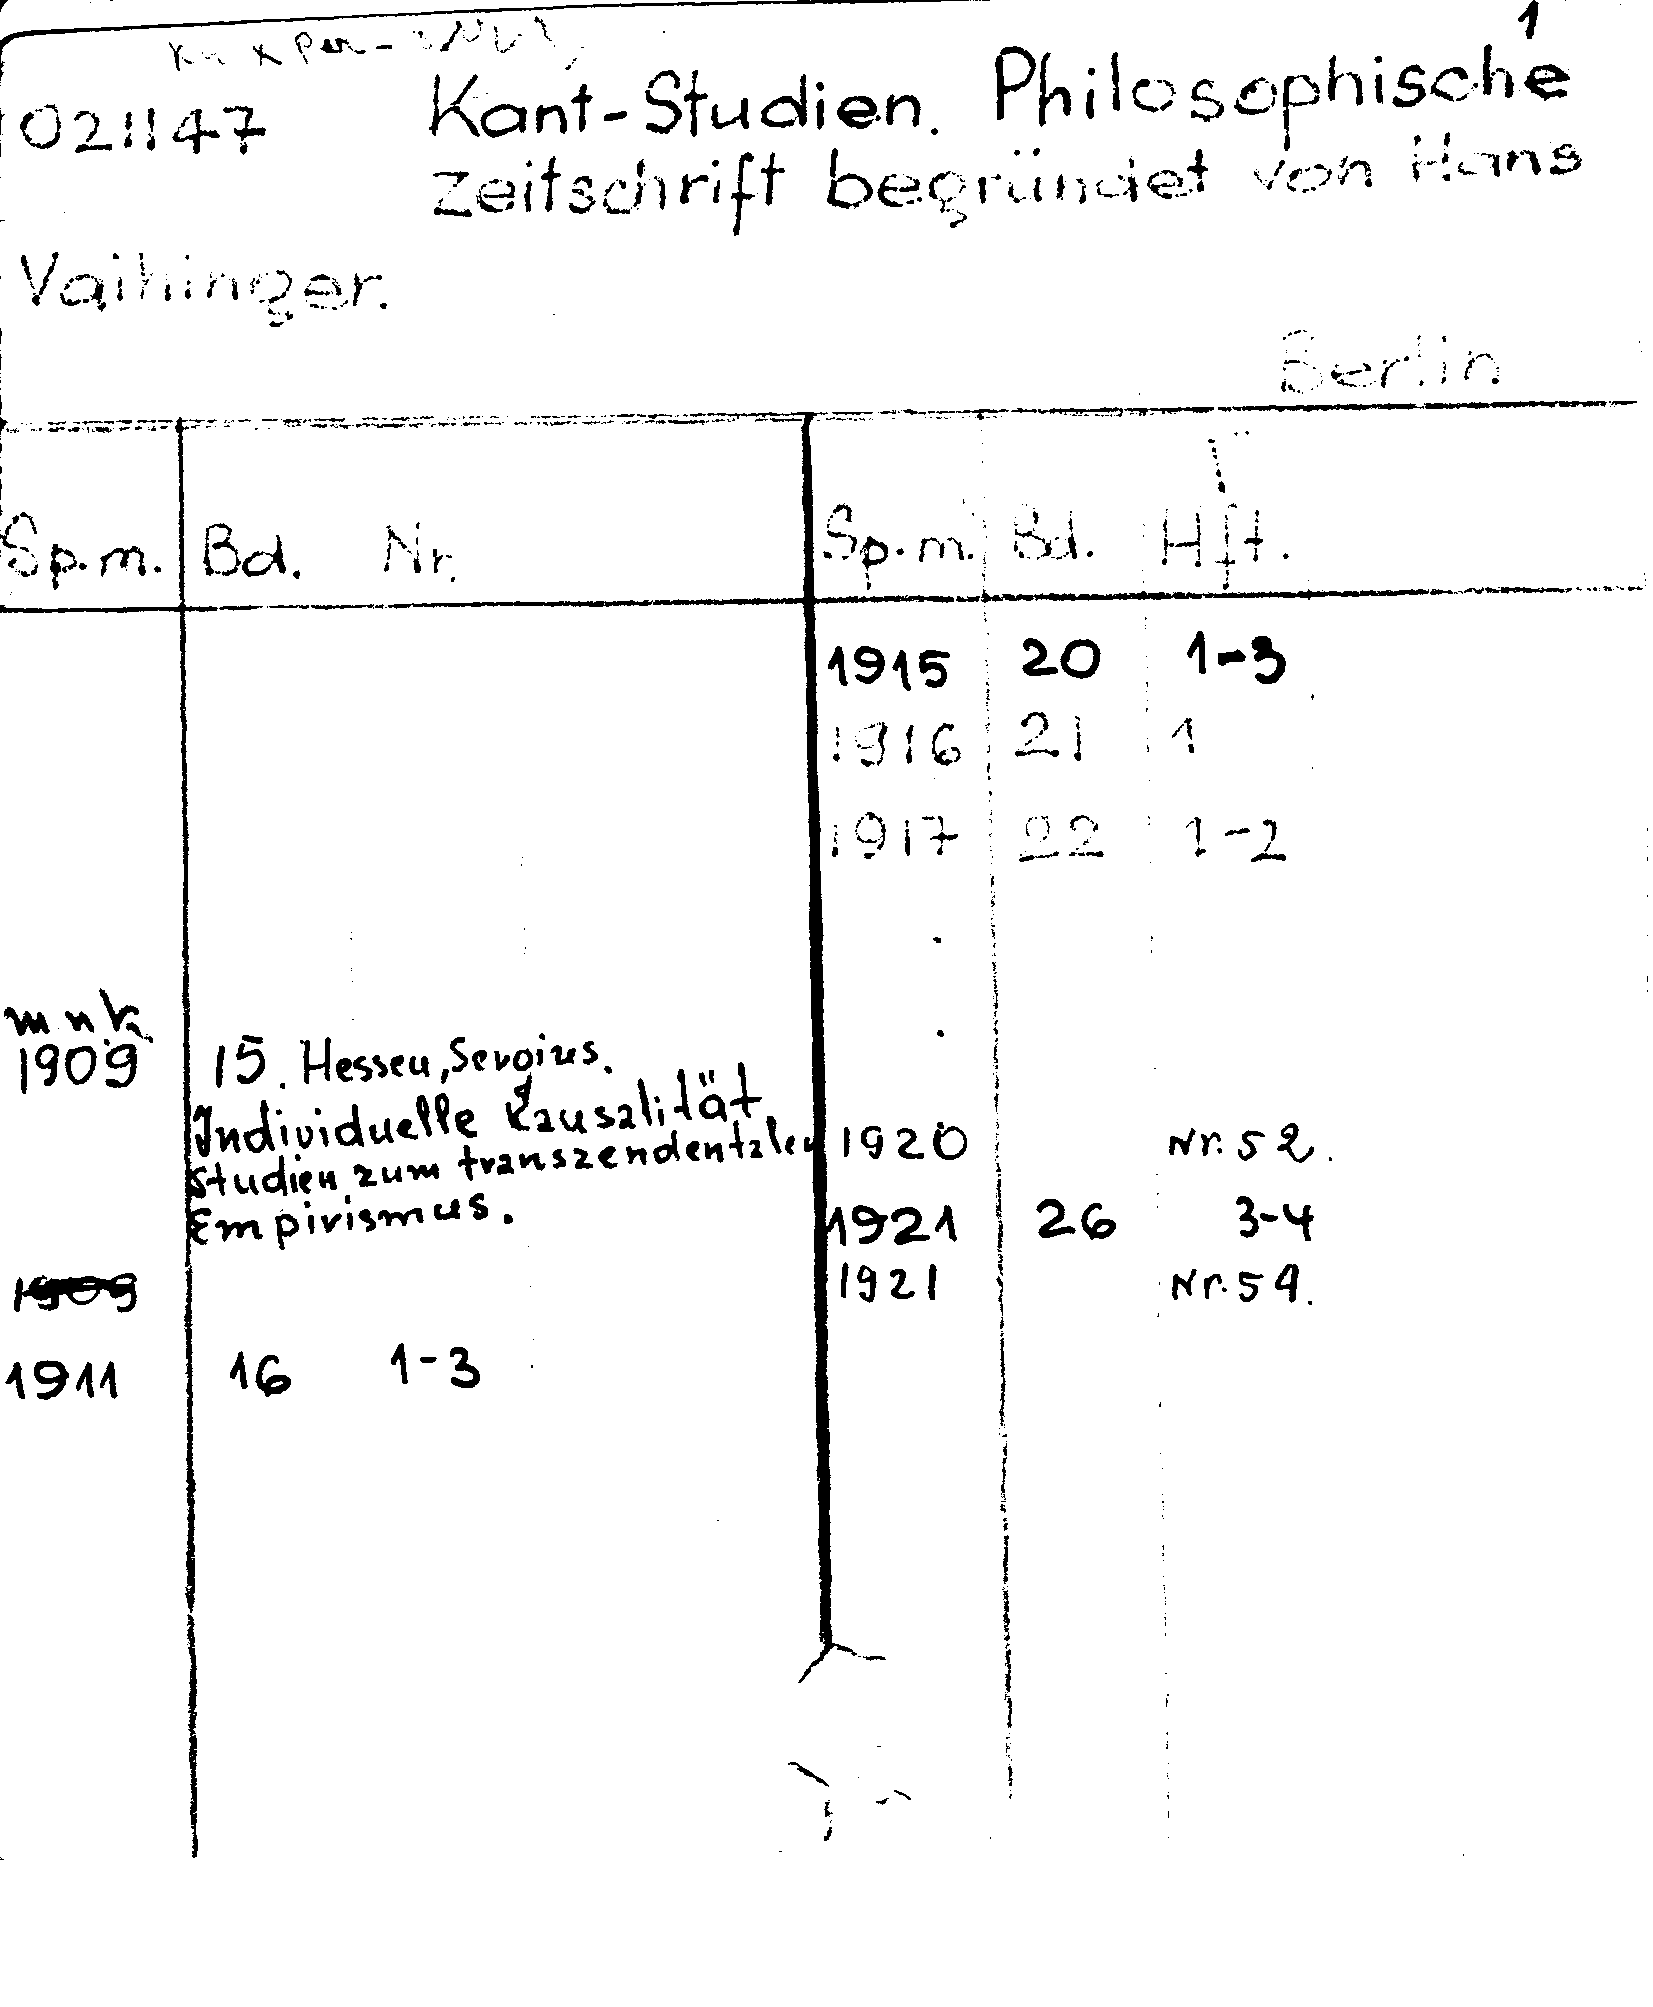 1
021147 Kant-Studien. Philosophische
Zeitschrift begründet von Hans
Vaihinger.
Berlin
Sp.m. Bd. Nr. Sp.m. Bd. Hft.
1915 20 1-3
1916 21 1
1917 22 1-2
1909 15. Hessen, Sergius.
Individuelle Kausalität
Studien zum transzendentalen
Empirismus.
1920 Nr. 52.
1921 26 3-4
1909
1921 Nr. 59.
1911 16 1-3